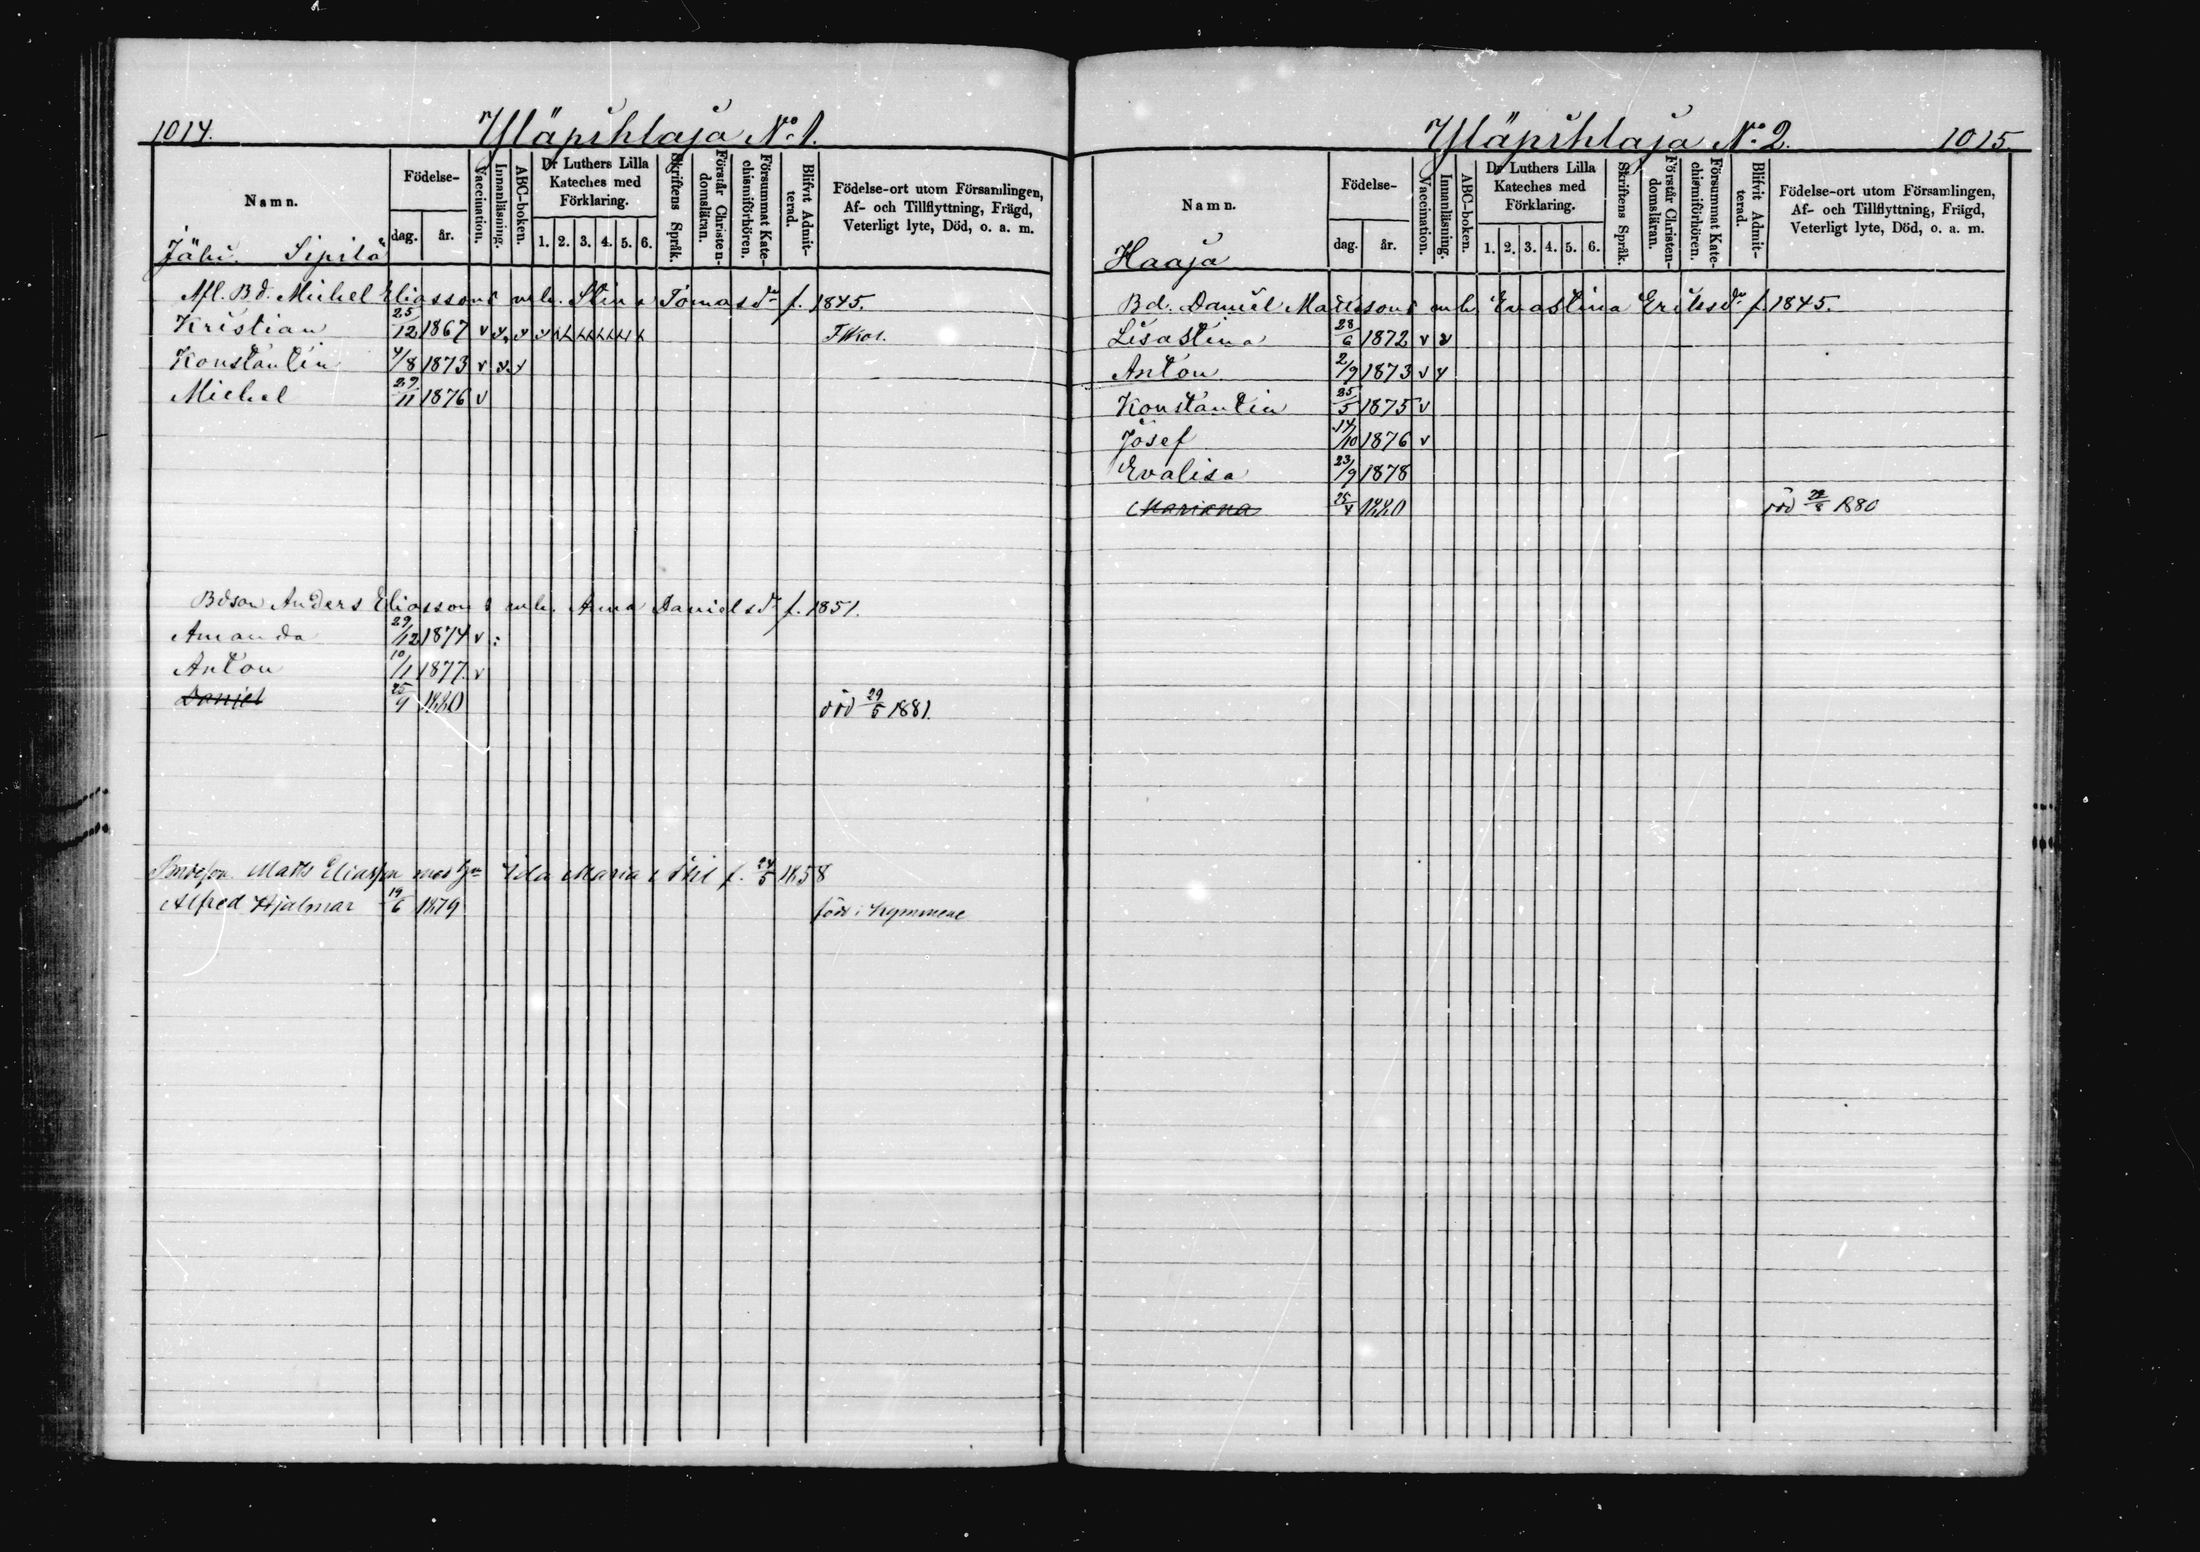 1014. Yläpihlaja No 1.
Namn. Födelse- dag. år. Vaccination. Innanläsning. ABC-boken. Dr Luthers Lilla Kateches med Förklaring. 1. 2. 3. 4. 5. 6. Skriftens Språk. Förstår Christendomsläran. Försummat Katechismiförhören. Blifvit Admitterad. Födelse-ort utom Församlingen, Af- och Tillflyttning, Frägd, Veterligt lyte, Död, o. a. m.
Sipilä
Afl. Bd. Michel Eliassons enk. Stina Tomasdr f. 1845.
Kristian 25/12 1867 v
Konstantin 4/8 1873 v
Michel 29/11 1876 v
Bdson Anders Eliassons enk. Anna Danielsdr f. 1851.
Amanda 29/12 1874 v
Anton 10/1 1877. v
Daniel 25/9 1880 död 29/5 1881.
Matts Eliasson med Ida Maria f. 24/5 1858
Alfred Hjalmar 19/6 1879 född i Kymmene
Yläpihlaja No 2. 1015.
Namn. Födelse- dag. år. Vaccination. Innanläsning. ABC-boken. Dr Luthers Lilla Kateches med Förklaring. 1. 2. 3. 4. 5. 6. Skriftens Språk. Förstår Christendomsläran. Försummat Katechismiförhören. Blifvit Admitterad. Födelse-ort utom Församlingen, Af- och Tillflyttning, Frägd, Veterligt lyte, Död, o. a. m.
Haaja
Bd. Daniel Mattssons enk. Evastina Eriksdr f. 1845.
Lisastina 28/6 1872 v v
Anton 2/9 1873 v
Konstantin 25/5 1875 v
Josef 14/10 1876 v
Evalisa 23/9 1878
Mariana 25/4 1880 död 1880